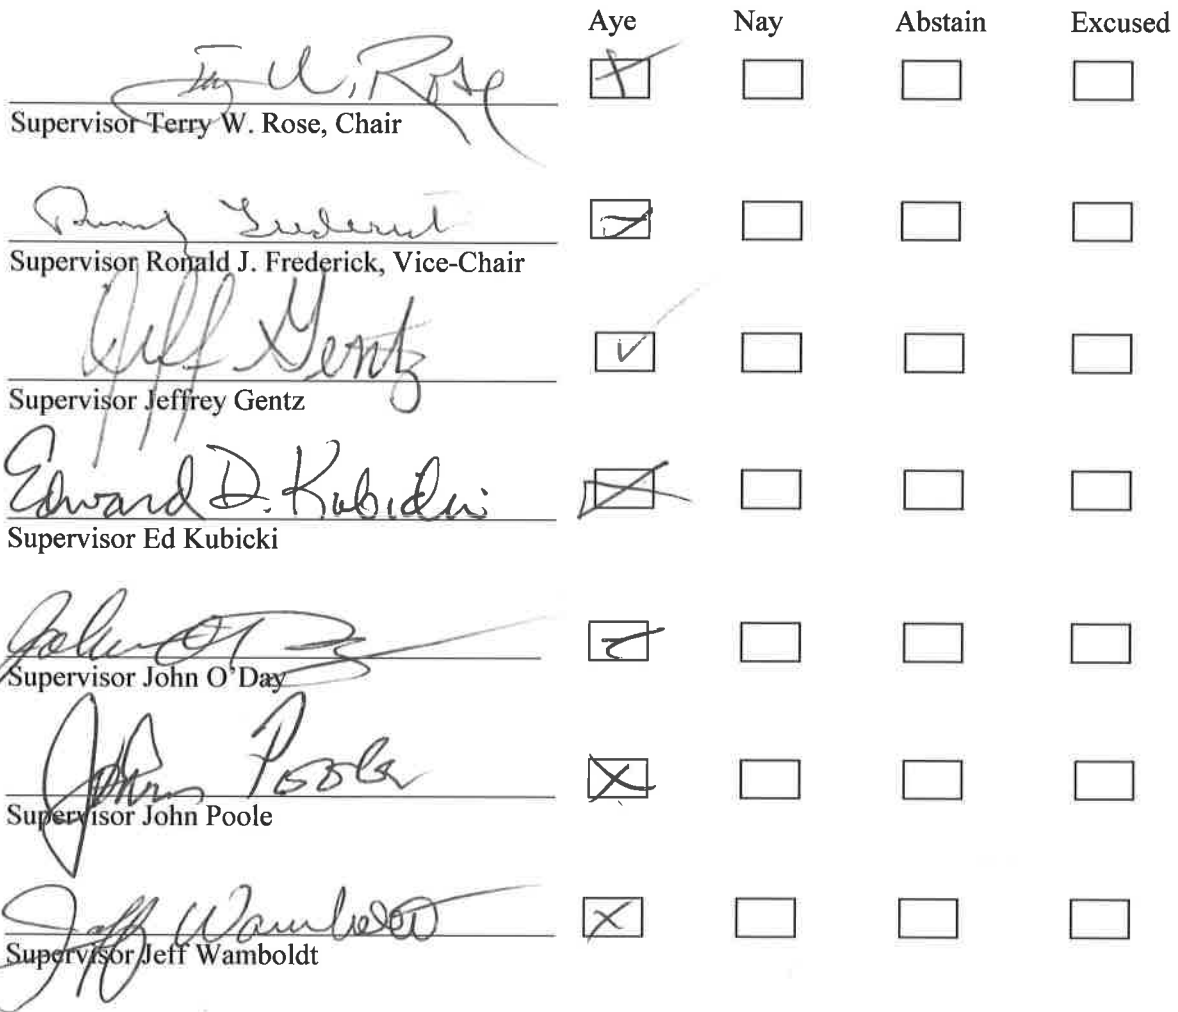 Aye Nay Abstain Excused
Terry W. Rose
Supervisor Terry W. Rose, Chair
Frederick
Supervisor Ronald J. Frederick, Vice-Chair
Jeff Gentz
Supervisor Jeffrey Gentz
Edward D. Kubicki
Supervisor Ed Kubicki
John O'Day
Supervisor John O'Day
John Poole
Supervisor John Poole
Jeff Wamboldt
Supervisor Jeff Wamboldt